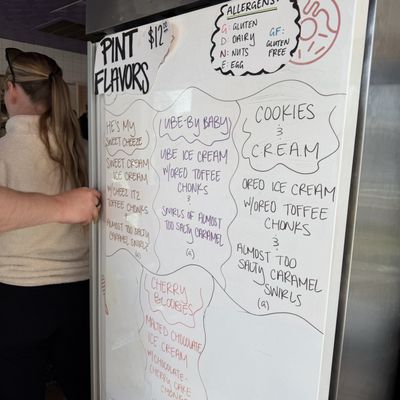 PINT
$12
FLAVORS
ALLERGENS:
G: GLUTEN
D: DAIRY
N: NUTS
E: EGG
GF:
GLUTEN
FREE
HE'S MY
SWEET CHEEZE
SWEET CREAM
ICE CREAM
W/CHEEZ ITZ
TOFFEE CHONKS
&
ALMOST TOO SALTY
CARAMEL SWIRLS
UBE-BY BABY
UBE ICE CREAM
W/OREO TOFFEE
CHONKS
&
SWIRLS OF ALMOST
TOO SALTY CARAMEL
COOKIES
&
CREAM
OREO ICE CREAM
W/OREO TOFFEE
CHONKS
&
ALMOST TOO
SALTY CARAMEL
SWIRLS
CHERRY
MALTED CHOCOLATE
ICE CREAM
W/CHOCOLATE-
CHERRY CAKE
CHONKS